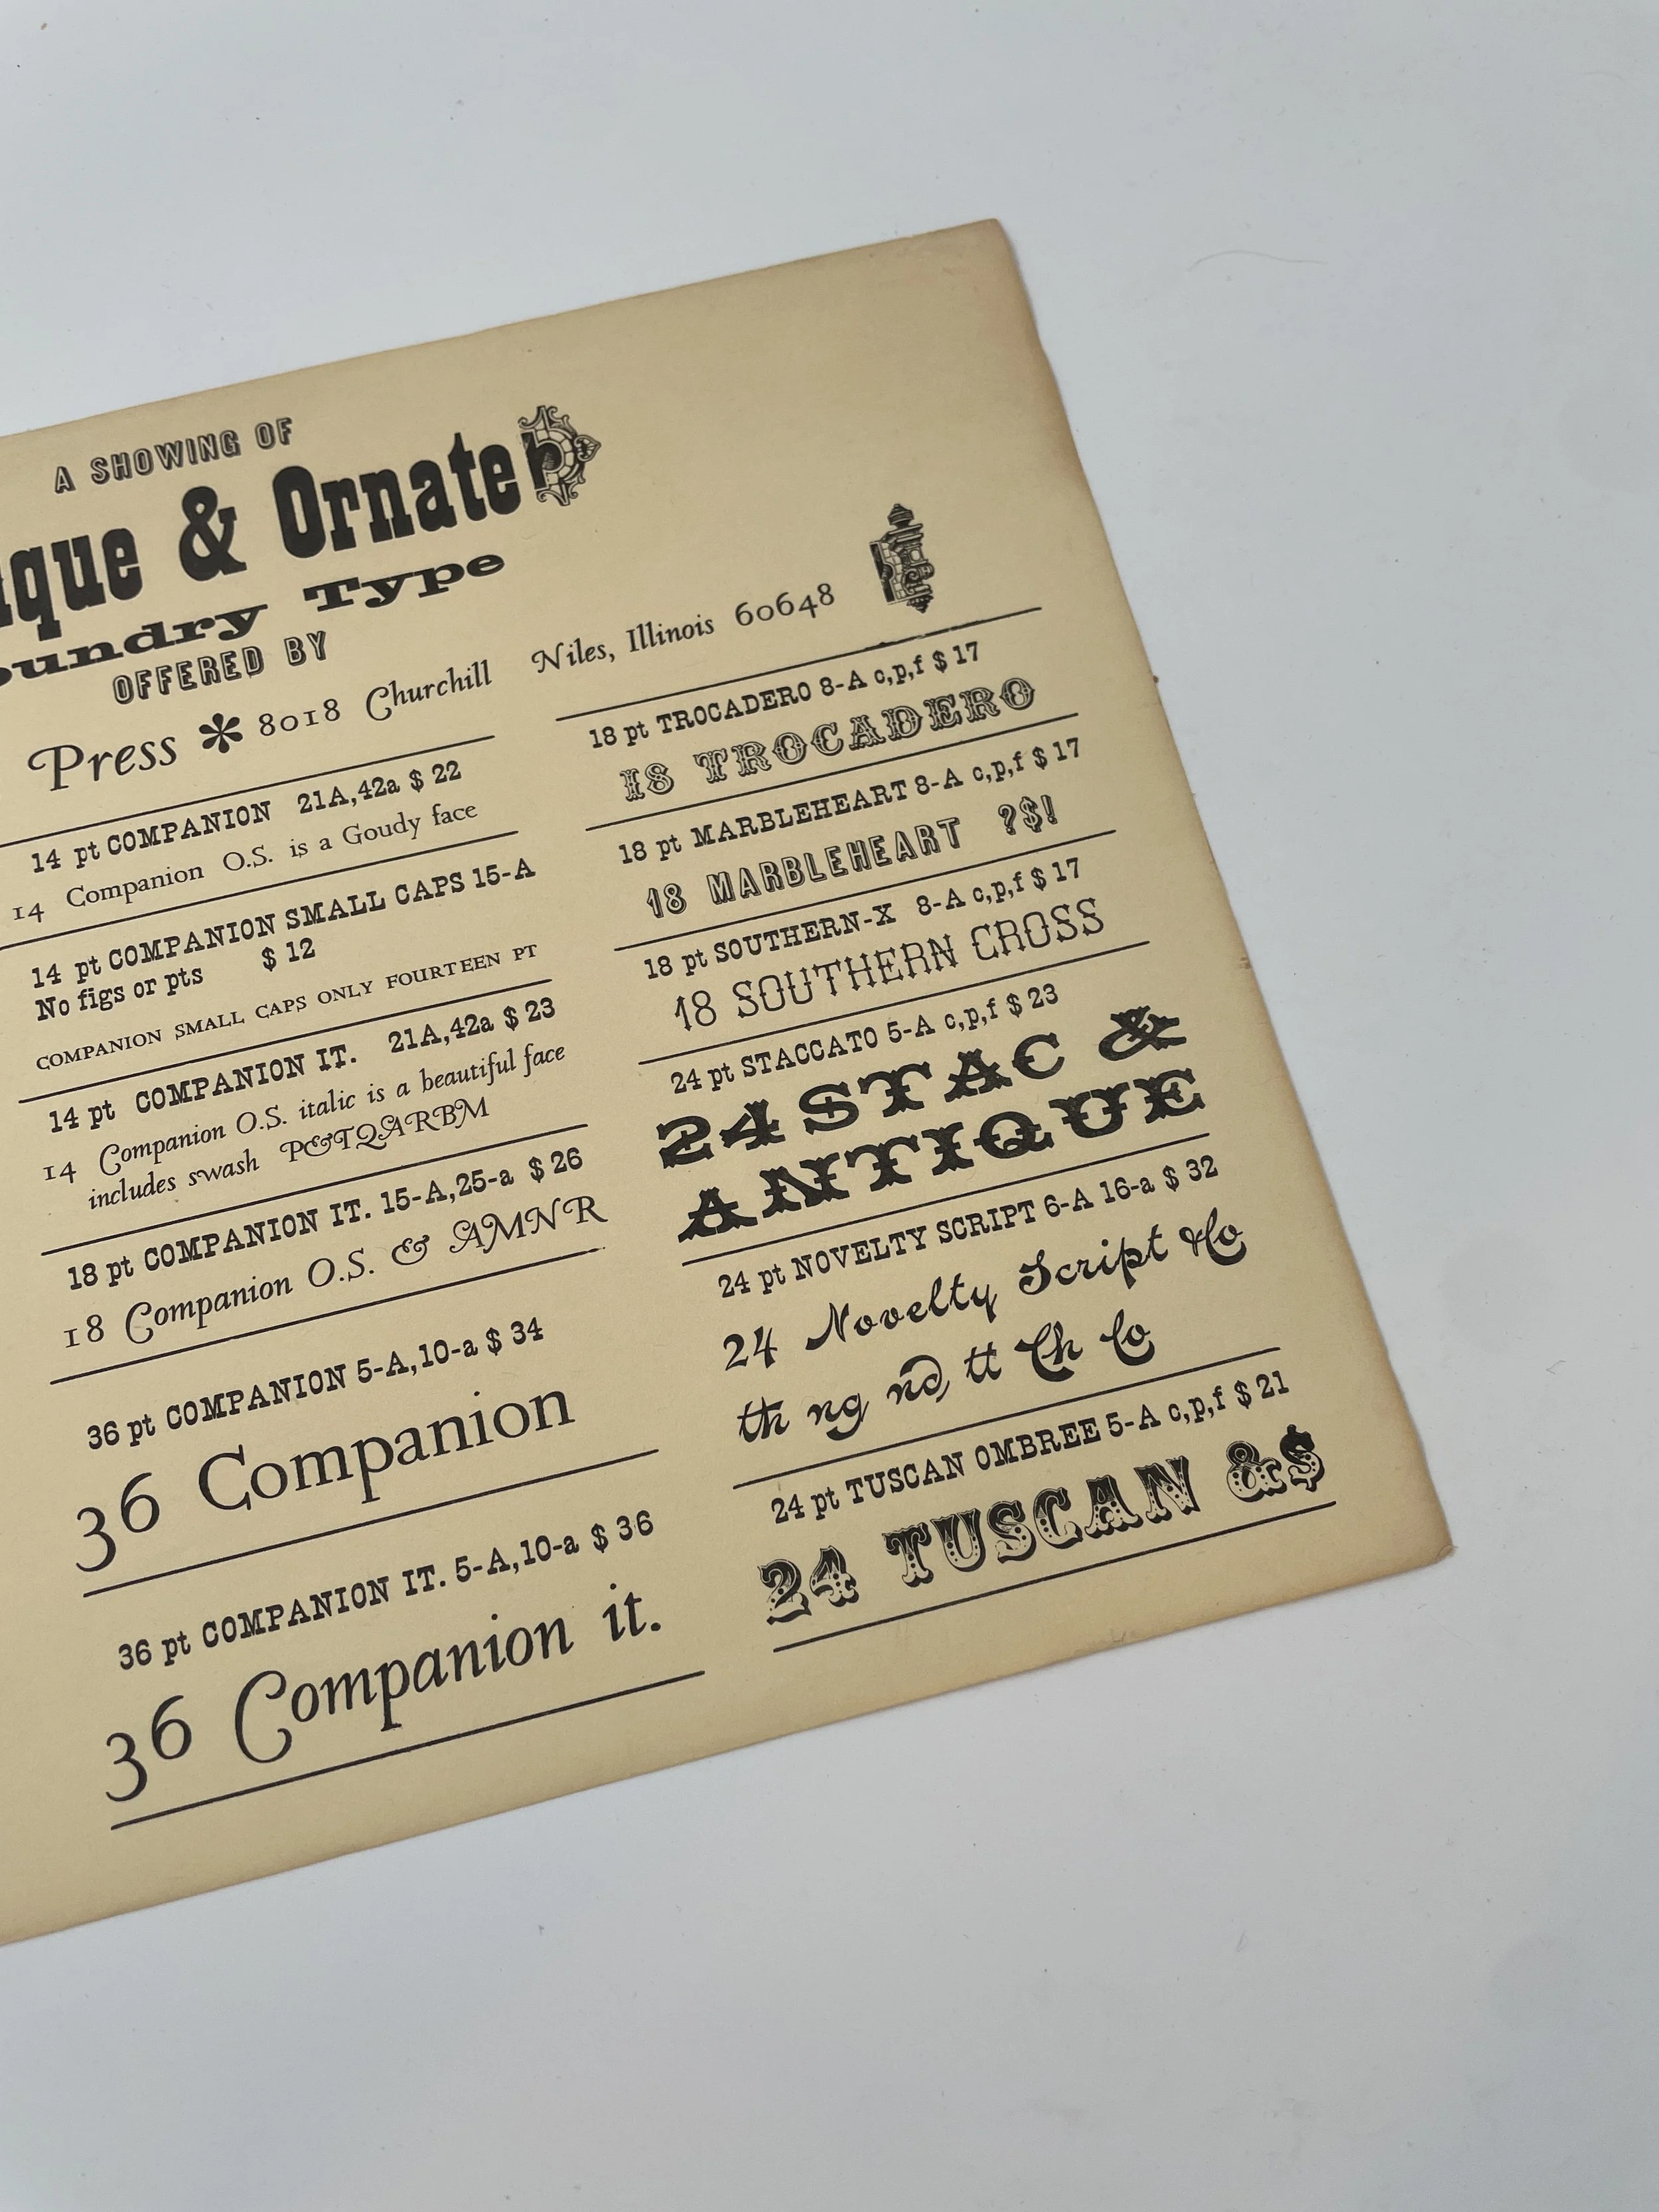 A SHOWING OF
& Ornate
Type
OFFERED BY
Press * 8018 Churchill Niles, Illinois 60648
14 pt COMPANION 21A,42a $ 22
14 Companion O.S. is a Goudy face
14 pt COMPANION SMALL CAPS 15-A
No figs or pts $ 12
COMPANION SMALL CAPS ONLY FOURTEEN PT
14 pt COMPANION IT. 21A,42a $ 23
14 Companion O.S. italic is a beautiful face
includes swash P&TQARBM
18 pt COMPANION IT. 15-A,25-a $ 26
18 Companion O.S. & AMNR
36 pt COMPANION 5-A,10-a $ 34
36 Companion
36 pt COMPANION IT. 5-A,10-a $ 36
36 Companion it.
18 pt TROCADERO 8-A c,p,f $ 17
18 TROCADERO
18 pt MARBLEHEART 8-A c,p,f $ 17
18 MARBLEHEART ?$!
18 pt SOUTHERN-X 8-A c,p,f $ 17
18 SOUTHERN CROSS
24 pt STACCATO 5-A c,p,f $ 23
24 STAC &
ANTIQUE
24 pt NOVELTY SCRIPT 6-A 16-a $ 32
24 Novelty Script
th ng nd tt Ch Co
24 pt TUSCAN OMBREE 5-A c,p,f $ 21
24 TUSCAN &$